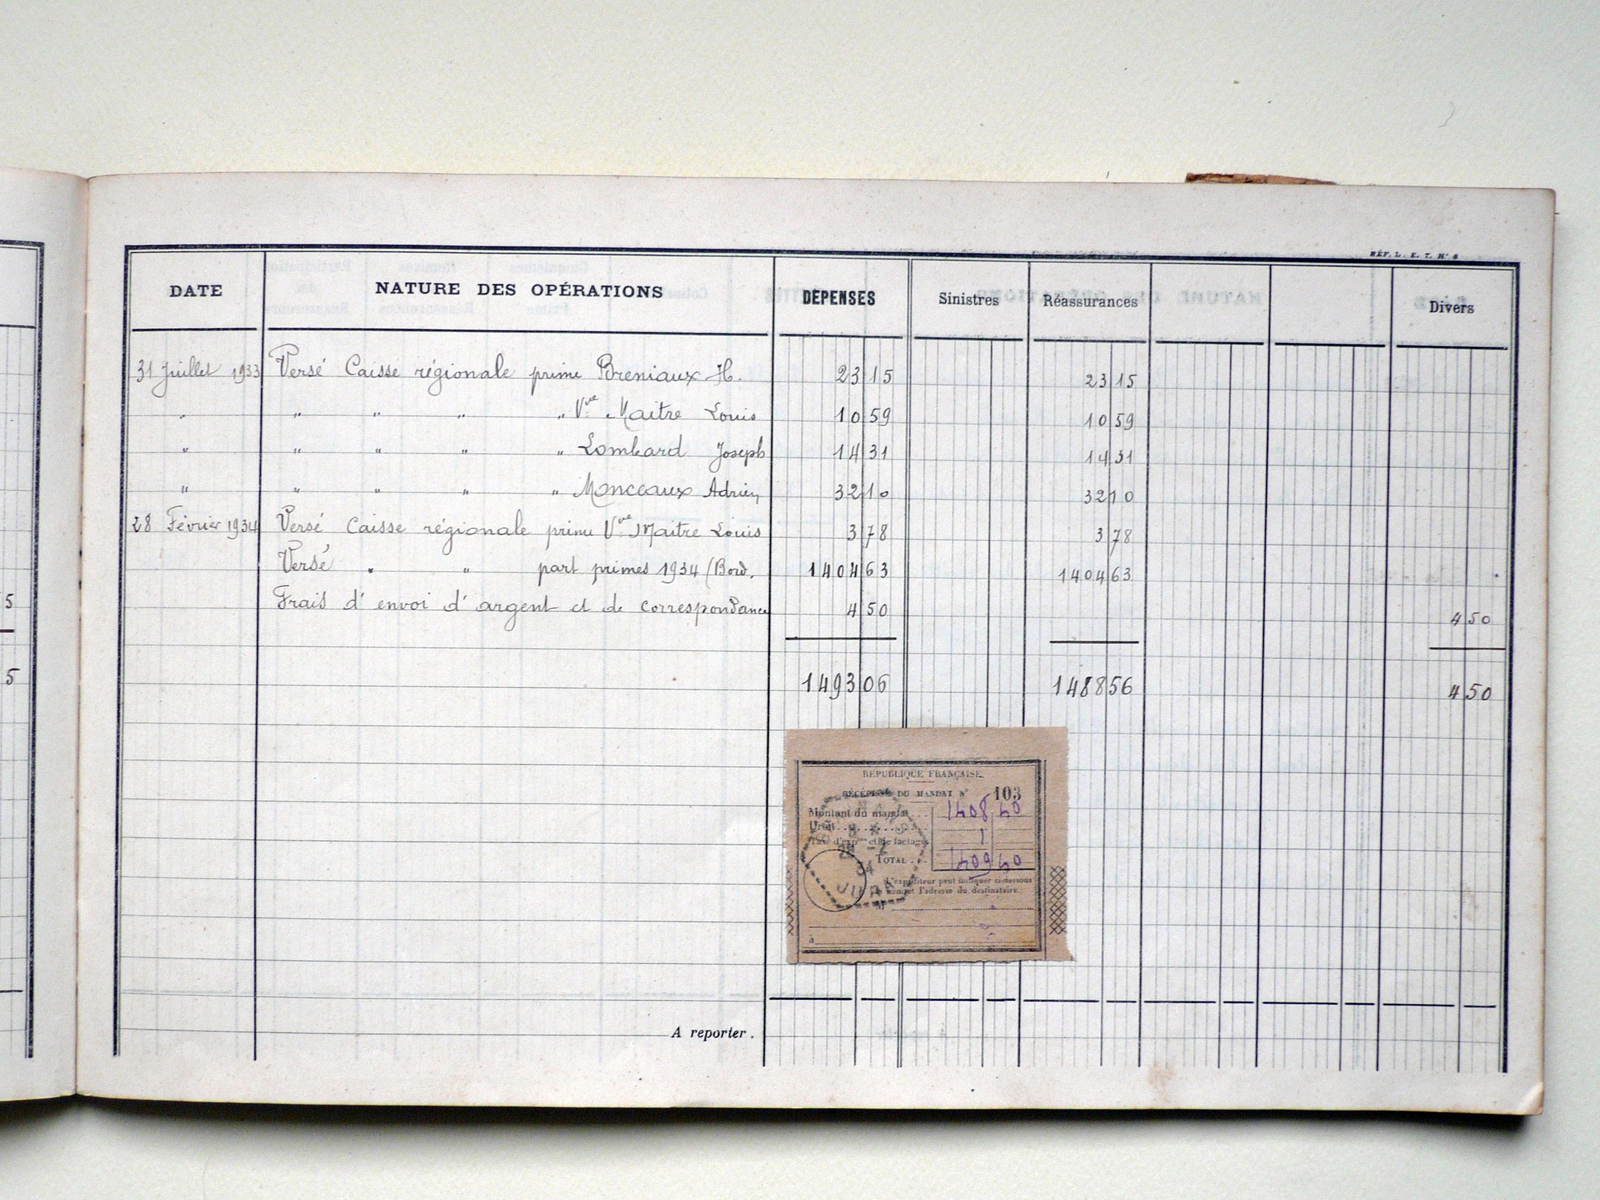 5
5
RÉF. L. E. T. N° 6
DATE NATURE DES OPÉRATIONS DÉPENSES Sinistres Réassurances Divers
31 Juillet 1933 Versé Caisse régionale prime Breniaux H. 23 15 23 15
" " " " " Vve Maitre Louis 10 59 10 59
" " " " " Lombard Joseph 14 31 14 31
" " " " " Monceaux Adrien 32 10 32 10
28 Février 1934 Versé Caisse régionale prime Vve Maitre Louis 3 78 3 78
Versé " " part primes 1934 (Bord. 1404 63 1404 63
Frais d'envoi d'argent et de correspondance 4 50 4 50
1493 06 1488 56 4 50
RÉPUBLIQUE FRANÇAISE
RÉCÉPISSÉ DU MANDAT N° 103
Montant du mandat 1408,40
Droit 1
et de factage
TOTAL 1409,40
L'expéditeur peut indiquer ci-dessous
nom et l'adresse du destinataire.
M
à
34
JURA
A reporter.